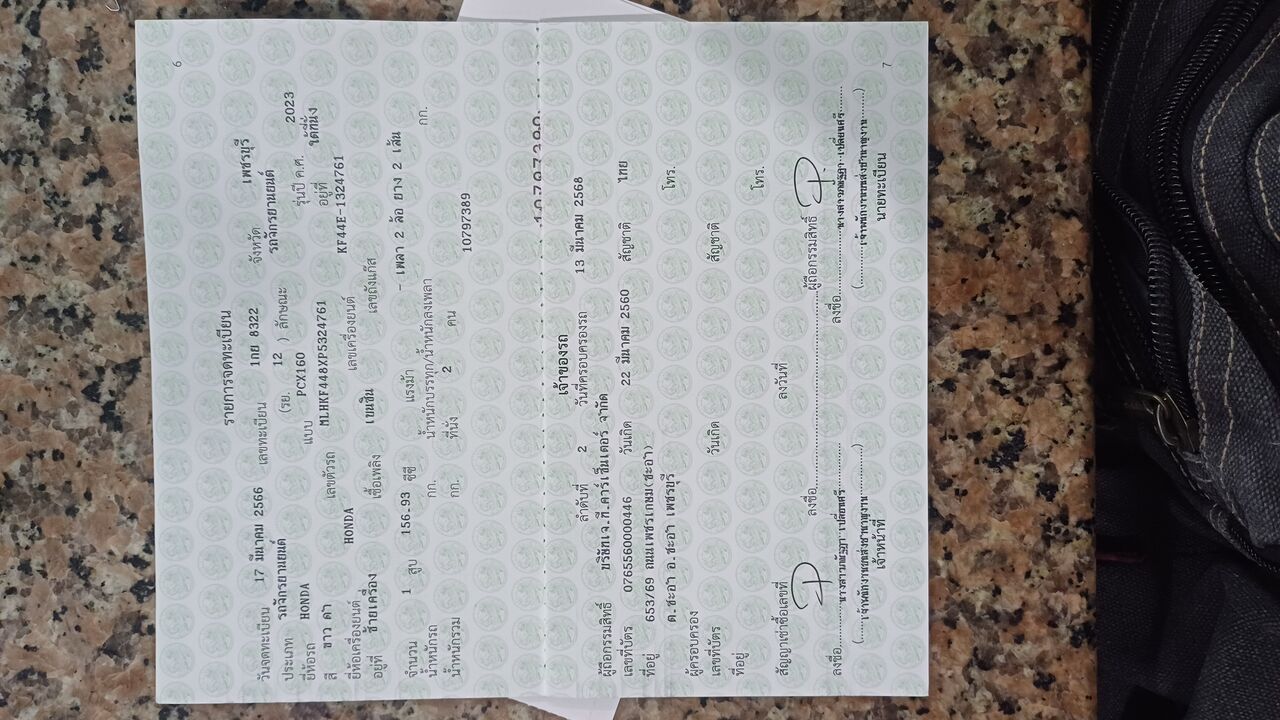 6
รายการจดทะเบียน
วันจดทะเบียน 17 มีนาคม 2566 เลขทะเบียน 1กย 8322 จังหวัด เพชรบุรี
ประเภท รถจักรยานยนต์ (รย. 12 ) ลักษณะ รถจักรยานยนต์
ยี่ห้อรถ HONDA แบบ PCX160 รุ่นปี ค.ศ. 2023
สี ขาว ดำ เลขตัวรถ MLHKF448XP5324761 อยู่ที่ ใต้ที่นั่ง
ยี่ห้อเครื่องยนต์ HONDA เลขเครื่องยนต์ KF44E-1324761
อยู่ที่ ซ้ายเครื่อง เชื้อเพลิง เบนซิน เลขถังแก๊ส
จำนวน 1 สูบ 156.93 ซีซี แรงม้า - เพลา 2 ล้อ ยาง 2 เส้น
น้ำหนักรถ กก. น้ำหนักบรรทุก/น้ำหนักลงเพลา กก.
น้ำหนักรวม กก. ที่นั่ง 2 คน
10797389
เจ้าของรถ
ลำดับที่ 2 วันที่ครอบครองรถ 13 มีนาคม 2568
ผู้ถือกรรมสิทธิ์ บริษัทเจ.ที.คาร์เซ็นเตอร์ จำกัด
เลขที่บัตร 0765560000446 วันเกิด 22 มีนาคม 2560 สัญชาติ ไทย
ที่อยู่ 653/69 ถนนเพชรเกษม(ชะอำ) โทร.
ต.ชะอำ อ.ชะอำ เพชรบุรี
ผู้ครอบครอง
เลขที่บัตร วันเกิด สัญชาติ
ที่อยู่ โทร.
สัญญาเช่าซื้อเลขที่ ลงวันที่
ลงชื่อ ผู้ถือกรรมสิทธิ์
ลงชื่อ ลงชื่อ
เจ้าหน้าที่ นายทะเบียน
7